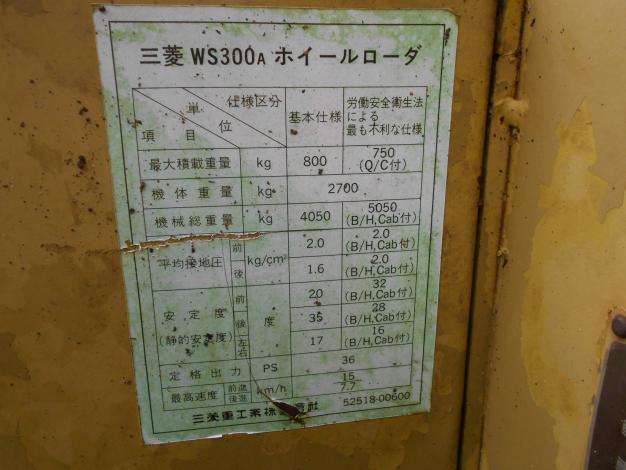 三菱 WS300A ホイールローダ
単位 仕様区分 項目 基本仕様 労働安全衛生法による最も不利な仕様
最大積載重量 kg 800 750 (Q/C付)
機体重量 kg 2700
機械総重量 kg 4050 5050 (B/H,Cab付)
平均接地圧 前 kg/cm² 2.0 2.0 (B/H,Cab付)
後 1.6 2.0 (B/H,Cab付)
安定度 (静的安定度) 前 度 20 32 (B/H,Cab付)
後 35 28 (B/H,Cab付)
左右 17 16 (B/H,Cab付)
定格出力 PS 36
最高速度 前進 km/h 15
後進 7.7
三菱重工業株式会社 52518-00600